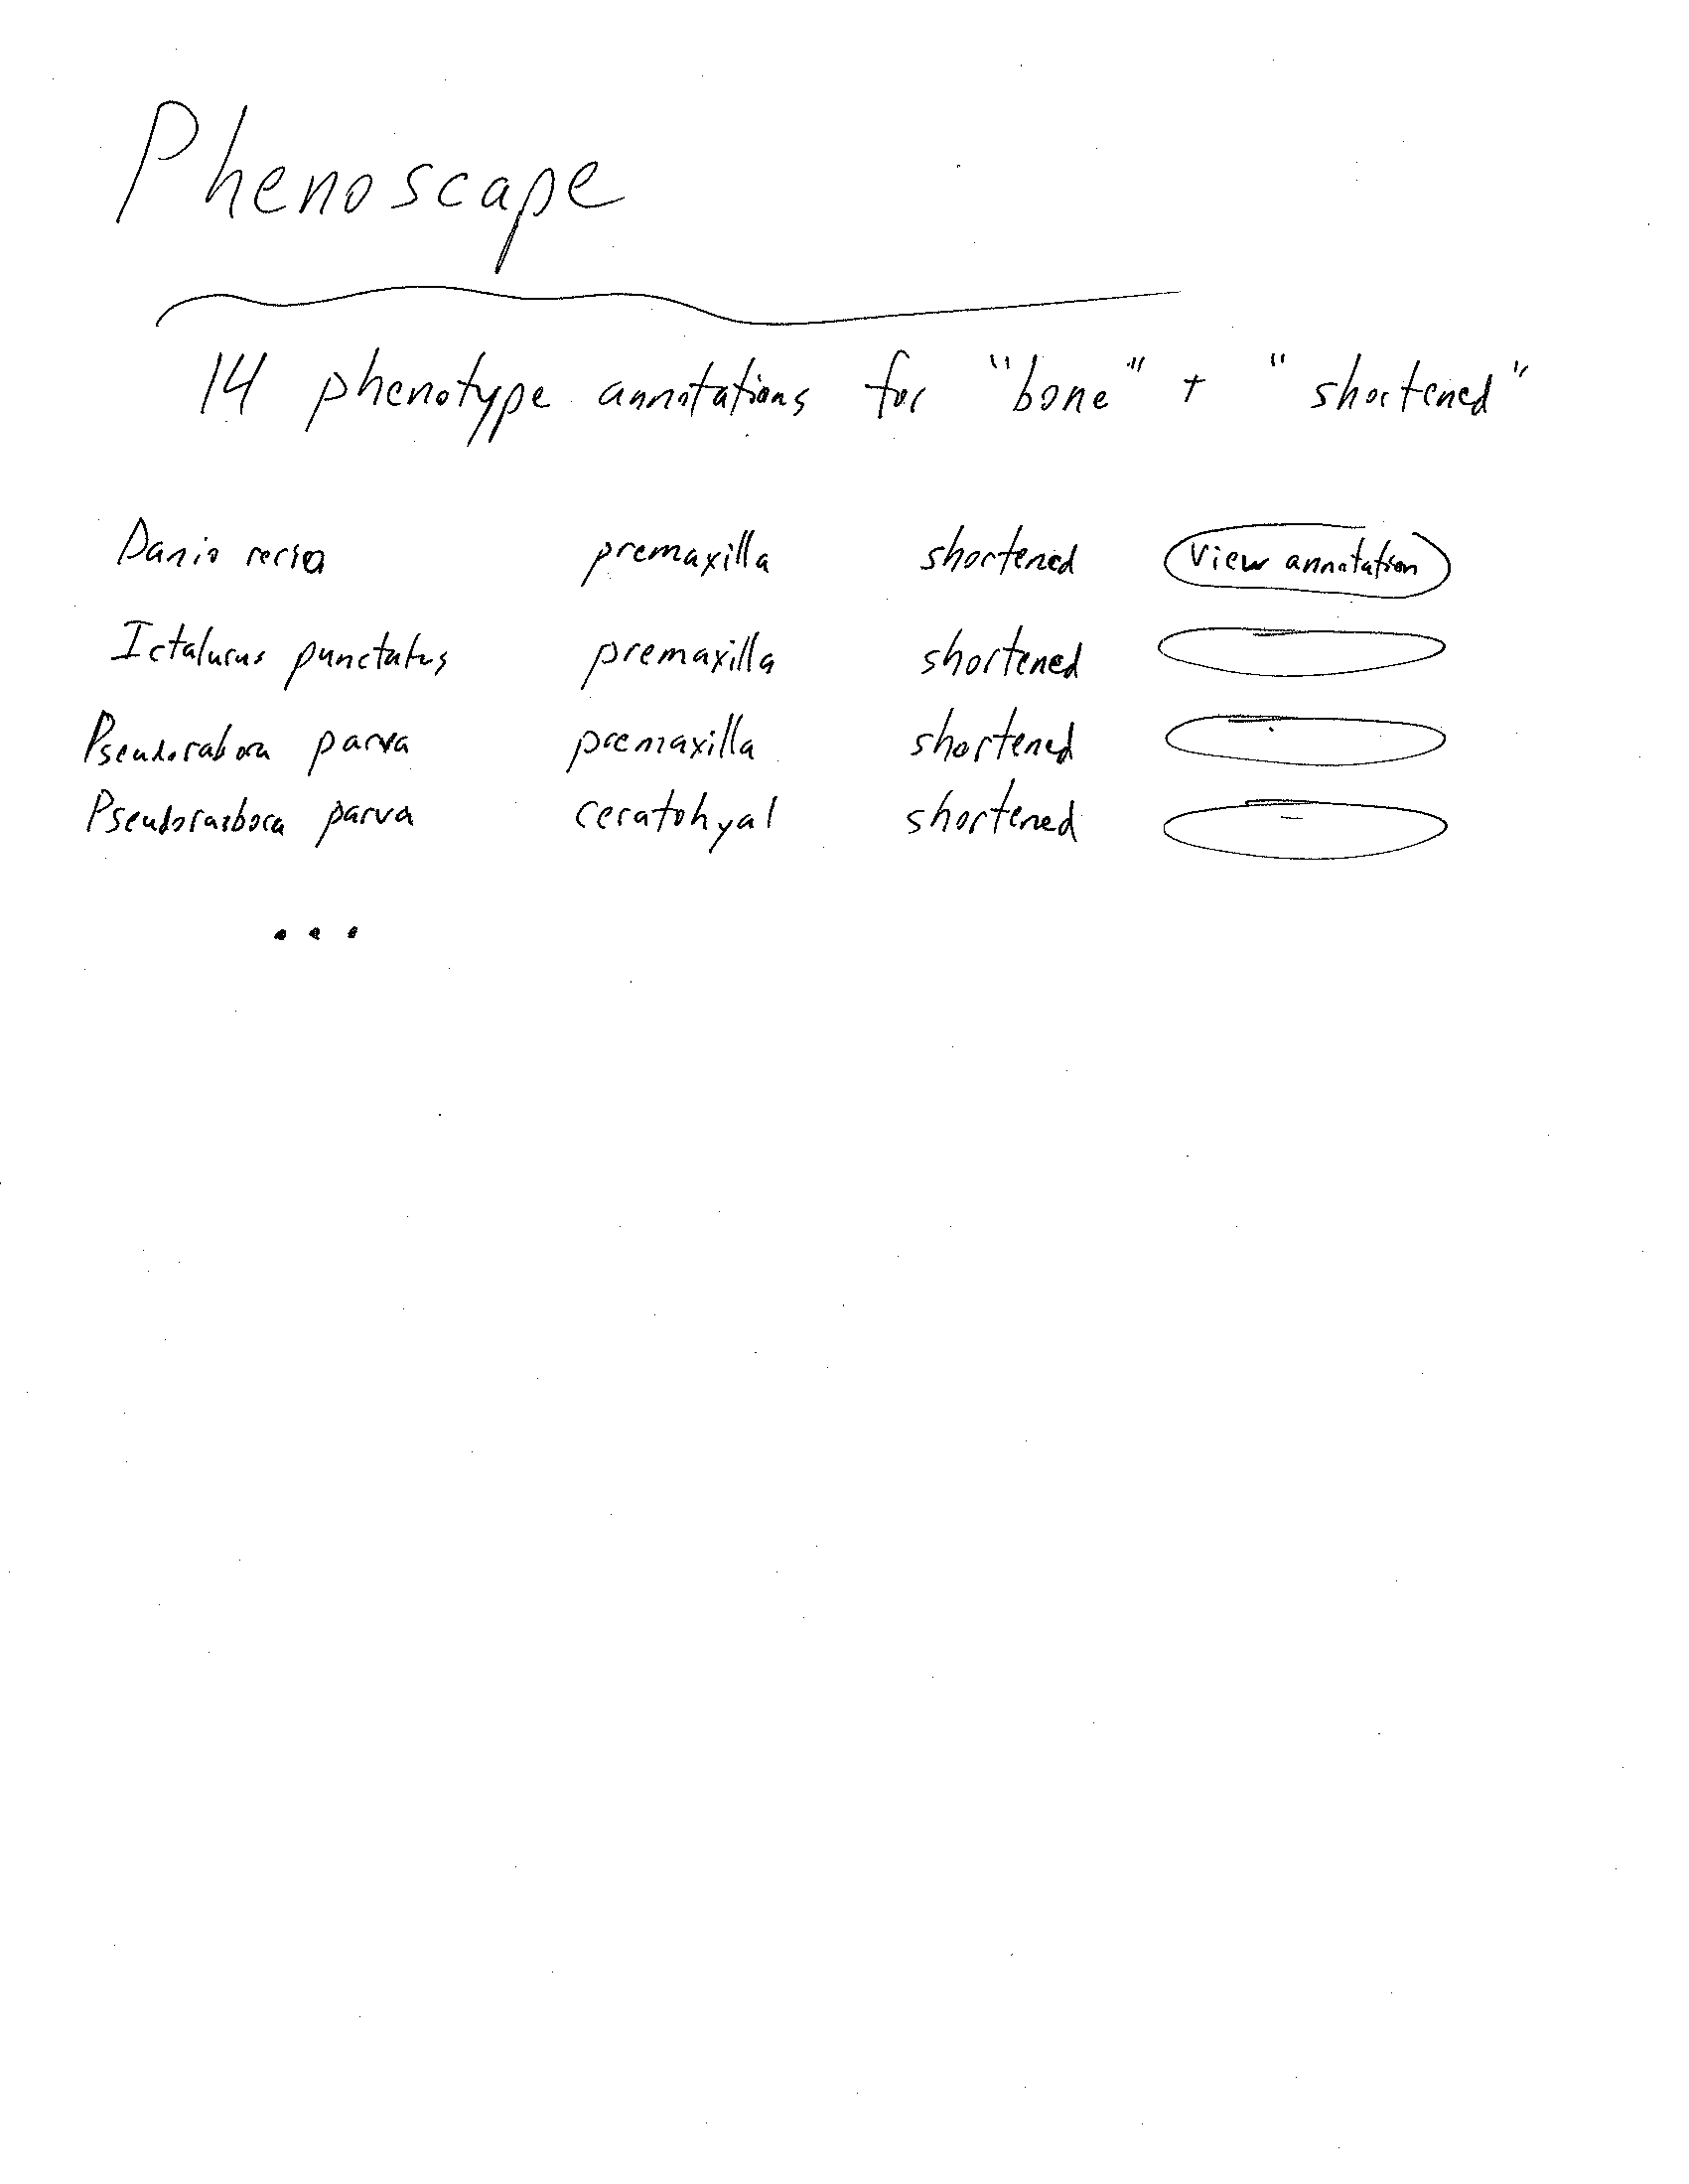 Phenoscape
14 phenotype annotations for "bone" + "shortened"
Danio rerio premaxilla shortened View annotation
Ictalurus punctatus premaxilla shortened
Pseudorabora parva premaxilla shortened
Pseudorasbora parva ceratohyal shortened
...